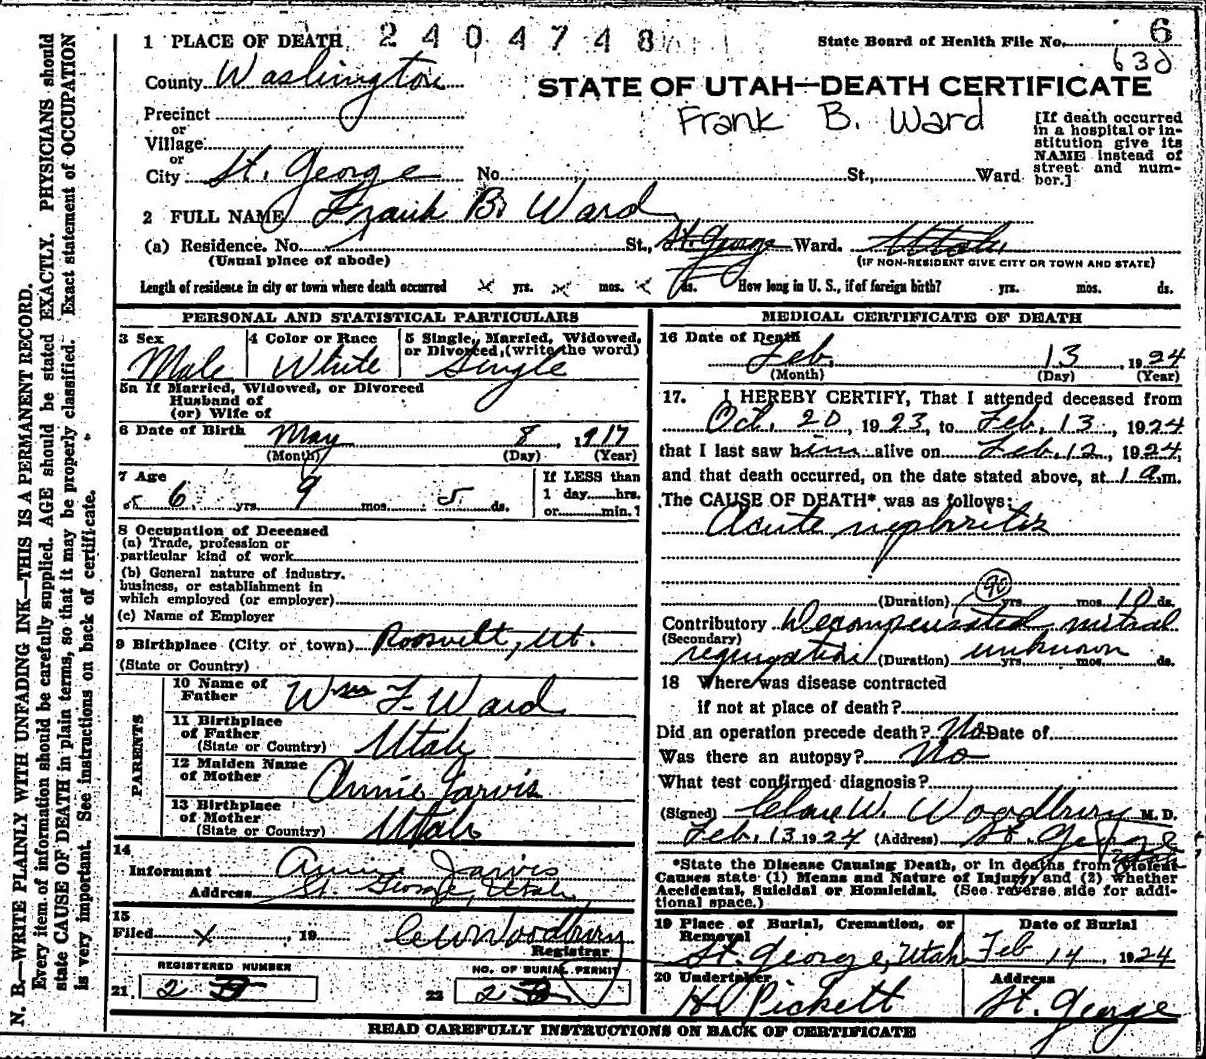 N. B.—WRITE PLAINLY WITH UNFADING INK—THIS IS A PERMANENT RECORD.
Every item of information should be carefully supplied. AGE should be stated EXACTLY. PHYSICIANS should
state CAUSE OF DEATH in plain terms, so that it may be properly classified. Exact statement of OCCUPATION
is very important. See instructions on back of certificate.
1 PLACE OF DEATH 2404748
State Board of Health File No. 6
630
County Washington
STATE OF UTAH—DEATH CERTIFICATE
Frank B. Ward
Precinct
or
Village
or
City St. George No. St., Ward
[If death occurred
in a hospital or in-
stitution give its
NAME instead of
street and num-
ber.]
2 FULL NAME Frank B. Ward
(a) Residence. No. St., St. George Ward. Utah
(Usual place of abode) (IF NON-RESIDENT GIVE CITY OR TOWN AND STATE)
Length of residence in city or town where death occurred x yrs. x mos. x ds. How long in U. S., if of foreign birth? yrs. mos. ds.
PERSONAL AND STATISTICAL PARTICULARS
3 Sex 4 Color or Race 5 Single, Married, Widowed,
or Divorced, (write the word)
Male White Single
5a If Married, Widowed, or Divorced
Husband of
(or) Wife of
6 Date of Birth May 8, 1917
(Month) (Day) (Year)
7 Age If LESS than
6 yrs 9 mos. 5 ds. 1 day hrs.
or min.?
8 Occupation of Deceased
(a) Trade, profession or
particular kind of work
(b) General nature of industry.
business, or establishment in
which employed (or employer)
(c) Name of Employer
9 Birthplace (City or town) Roosvelt, Ut.
(State or Country)
PARENTS
10 Name of
Father Wm F. Ward
11 Birthplace
of Father
(State or Country) Utah
12 Maiden Name
of Mother Annie Jarvis
13 Birthplace
of Mother
(State or Country) Utah
14
Informant Annie Jarvis
Address St. George, Utah
15
Filed x, 19 C W Woodbury
Registrar
REGISTERED NUMBER NO. OF BURIAL PERMIT
21 2 22 2
MEDICAL CERTIFICATE OF DEATH
16 Date of Death
Feb. 13, 1924
(Month) (Day) (Year)
17. I HEREBY CERTIFY, That I attended deceased from
Oct. 20, 1923, to Feb. 13, 1924
that I last saw him alive on Feb. 12, 1924,
and that death occurred, on the date stated above, at 1 a.m.
The CAUSE OF DEATH* was as follows:
Acute nephritis
90
(Duration) yrs. mos. 10 ds.
Contributory Decompensated mitral
(Secondary)
regurgitation (Duration) unknown yrs. mos. ds.
18 Where was disease contracted
if not at place of death?
Did an operation precede death? No Date of
Was there an autopsy? No
What test confirmed diagnosis?
(Signed) Clare W. Woodbury M. D.
Feb. 13 1924 (Address) St. George
*State the Disease Causing Death, or in deaths from Violent
Causes state (1) Means and Nature of Injury; and (2) whether
Accidental, Suicidal or Homicidal. (See reverse side for addi-
tional space.)
19 Place of Burial, Cremation, or Date of Burial
Removal
St. George, Utah Feb 14, 1924
20 Undertaker Address
H Pickett St. George
READ CAREFULLY INSTRUCTIONS ON BACK OF CERTIFICATE